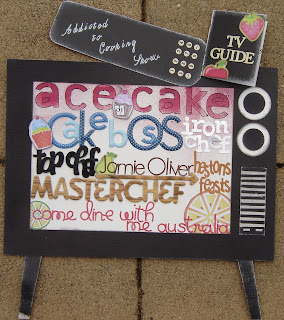 Addicted
to
Cooking
Shows
TV
GUIDE
ace cake
Cake boss
iron
chef
top chef
Jamie Oliver
hestons
feasts
MASTERCHEF
come dine with
me australia